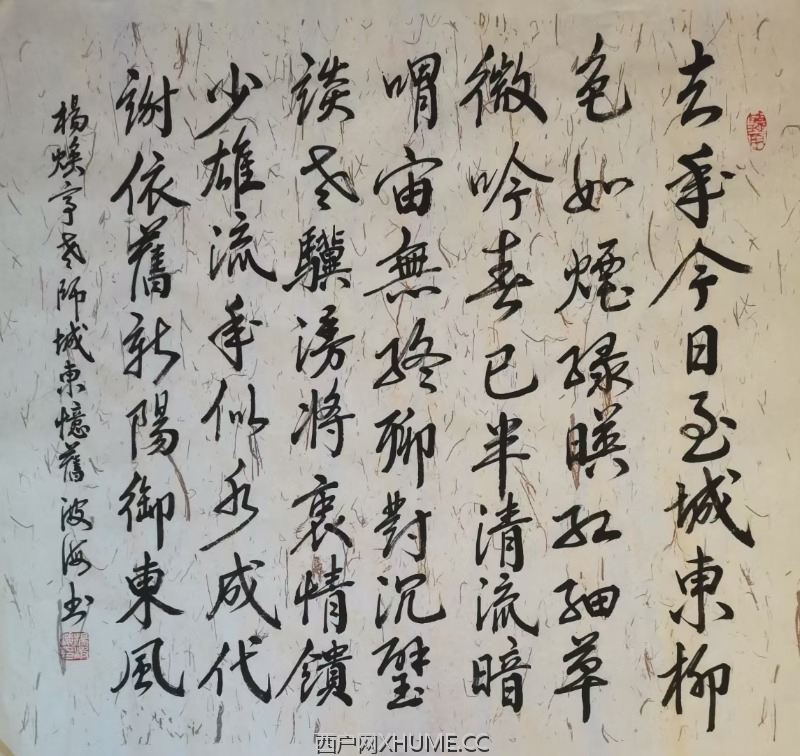 去年今日至城東柳
色如煙緑暎紅細草
微吟春已半清流暗
喟宙無終聊對沉璧
談老驥湧將衷情饋
少雄流年似水成代
謝依舊新陽御東風
楊焕亭老師城東憶舊波海书
西户网XHUME.CC